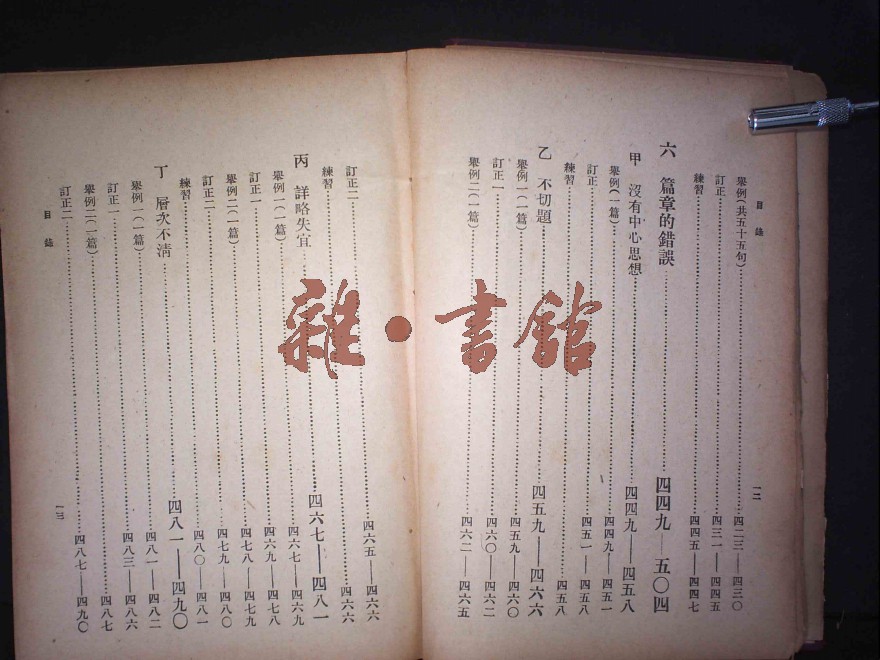 目錄
一二
舉例(共五十五句)……四二三——四三〇
訂正……四三一——四四五
練習……四四五——四四七
六 篇章的錯誤……四四九——五〇四
甲 沒有中心思想……四四九——四五八
舉例(一篇)……四四九——四五一
訂正……四五一——四五八
練習……四五八
乙 不切題……四五九——四六六
舉例一(一篇)……四五九——四六〇
訂正一……四六〇——四六二
舉例二(一篇)……四六二——四六五
訂正二……四六五——四六六
練習……四六六
丙 詳略失宜……四六七——四八一
舉例一(一篇)……四六七——四六九
訂正一……四六九——四七八
舉例二(一篇)……四七八——四七九
訂正二……四七九——四八〇
練習……四八〇——四八一
丁 層次不清……四八一——四九〇
舉例一(一篇)……四八一——四八二
訂正一……四八三——四八六
舉例二(一篇)……四八七
訂正二……四八七——四九〇
目錄
一三
雜·書館